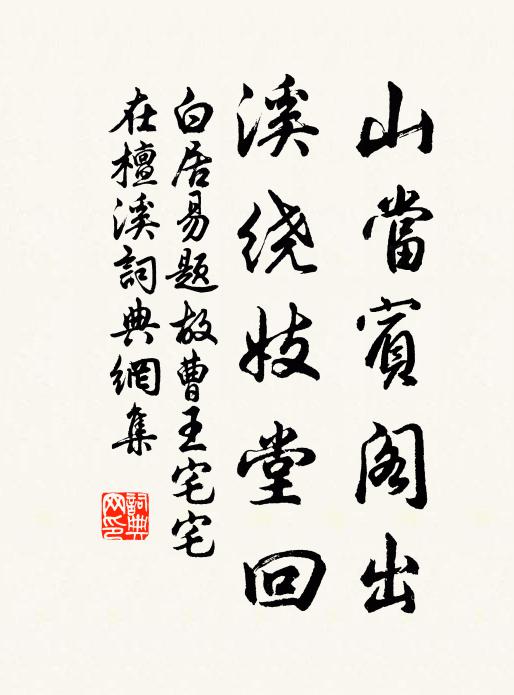 山當賓阁出
溪绕妓堂回
白居易题故曹王宅宅
在檀溪詞典網集
詞典
网印